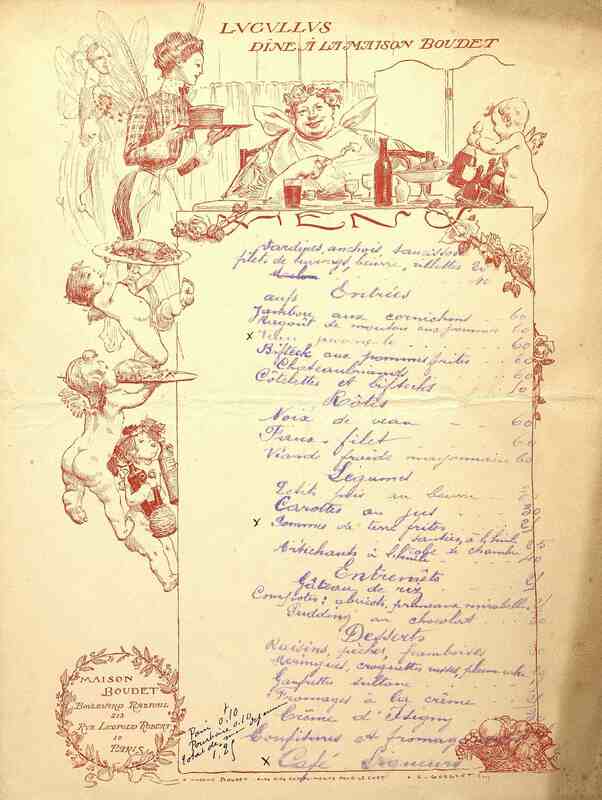 LVCVLLVS
DÎNE À LA MAISON BOUDET
MENU
Sardines, anchois, saucisson
filet de harengs, beurre, rillettes 20
Entrées
Jambon aux cornichons 60
Ragoût de moutons aux pommes 60
x
Bifteck aux pommes frites 60
Chateaubriand 60
Côtelettes et biftecks
Rôtis
Noix de veau 60
Faux-filet 60
Viande froide mayonnaise 60
Légumes
Petits pois au beurre
Carottes au jus
x Pommes de terre frites
sautées, à l'huile
Artichauts à l'huile
Entremets
Gâteau de riz
Compotes: abricots, pruneaux, mirabelles
Pudding au chocolat
Desserts
Raisins, pêches, framboises
Meringues, croquettes russes,
Gaufrettes sultane
Fromages à la crême
Crême d'Isigny
Confitures et fromages
x Café Liqueurs
MAISON
BOUDET
BOULEVARD RASPAIL
213
RUE LEOPOLD ROBERT
10
PARIS
Pain 0.10
Pourboire
total
1.25